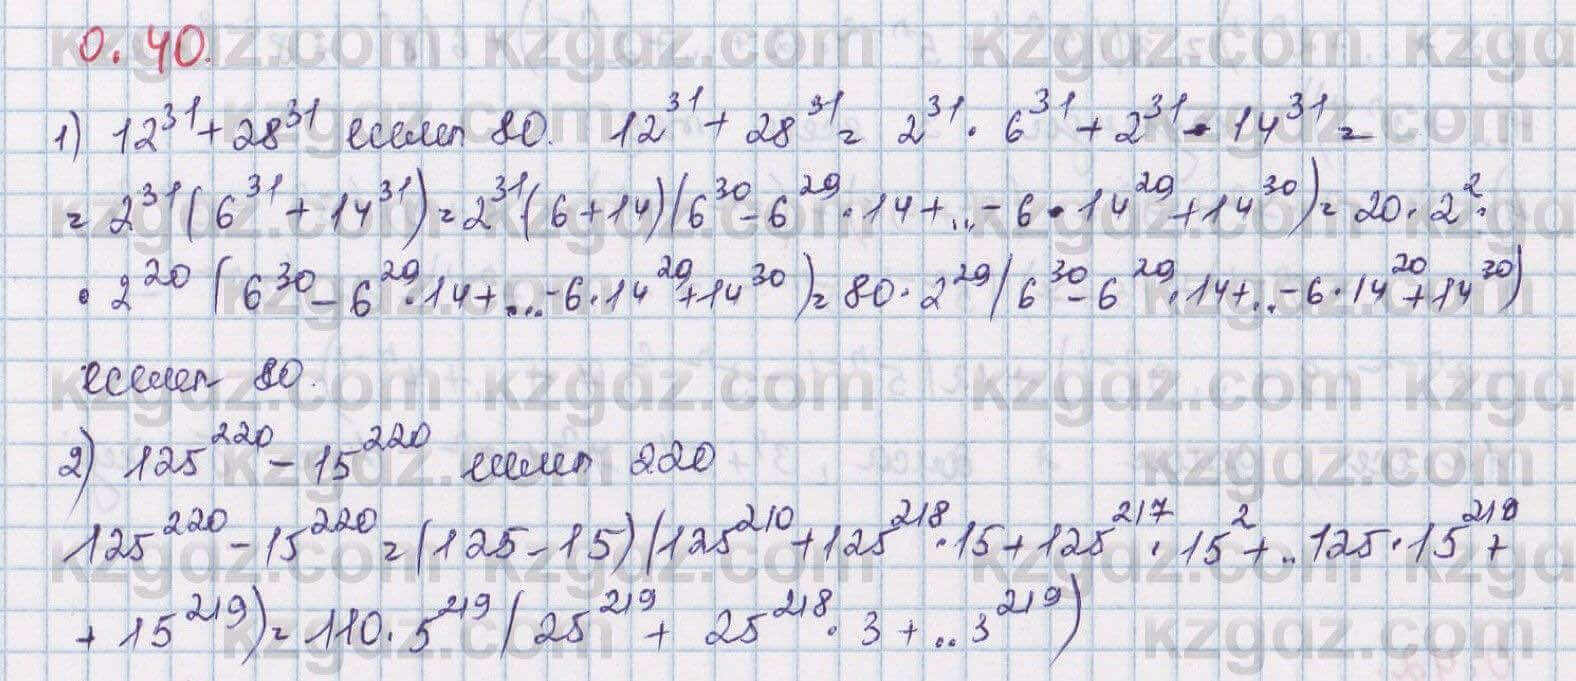 0.40.
1) 12^31 + 28^31 еселен 80. 12^31 + 28^31 = 2^31 · 6^31 + 2^31 · 14^31 =
= 2^31 (6^31 + 14^31) = 2^31 (6 + 14) (6^30 - 6^29 · 14 + ... - 6 · 14^29 + 14^30) = 20 · 2^2 ·
· 2^20 (6^30 - 6^29 · 14 + ... - 6 · 14^29 + 14^30) = 80 · 2^29 (6^30 - 6^29 · 14 + .. - 6 · 14^20 + 14^30)
еселеп 80.
2) 125^220 - 15^220 еселеп 220
125^220 - 15^220 = (125 - 15) (125^210 + 125^218 · 15 + 125^217 · 15^2 + .. 125 · 15^218 +
+ 15^219) = 110 · 5^219 (25^219 + 25^218 · 3 + .. 3^219)